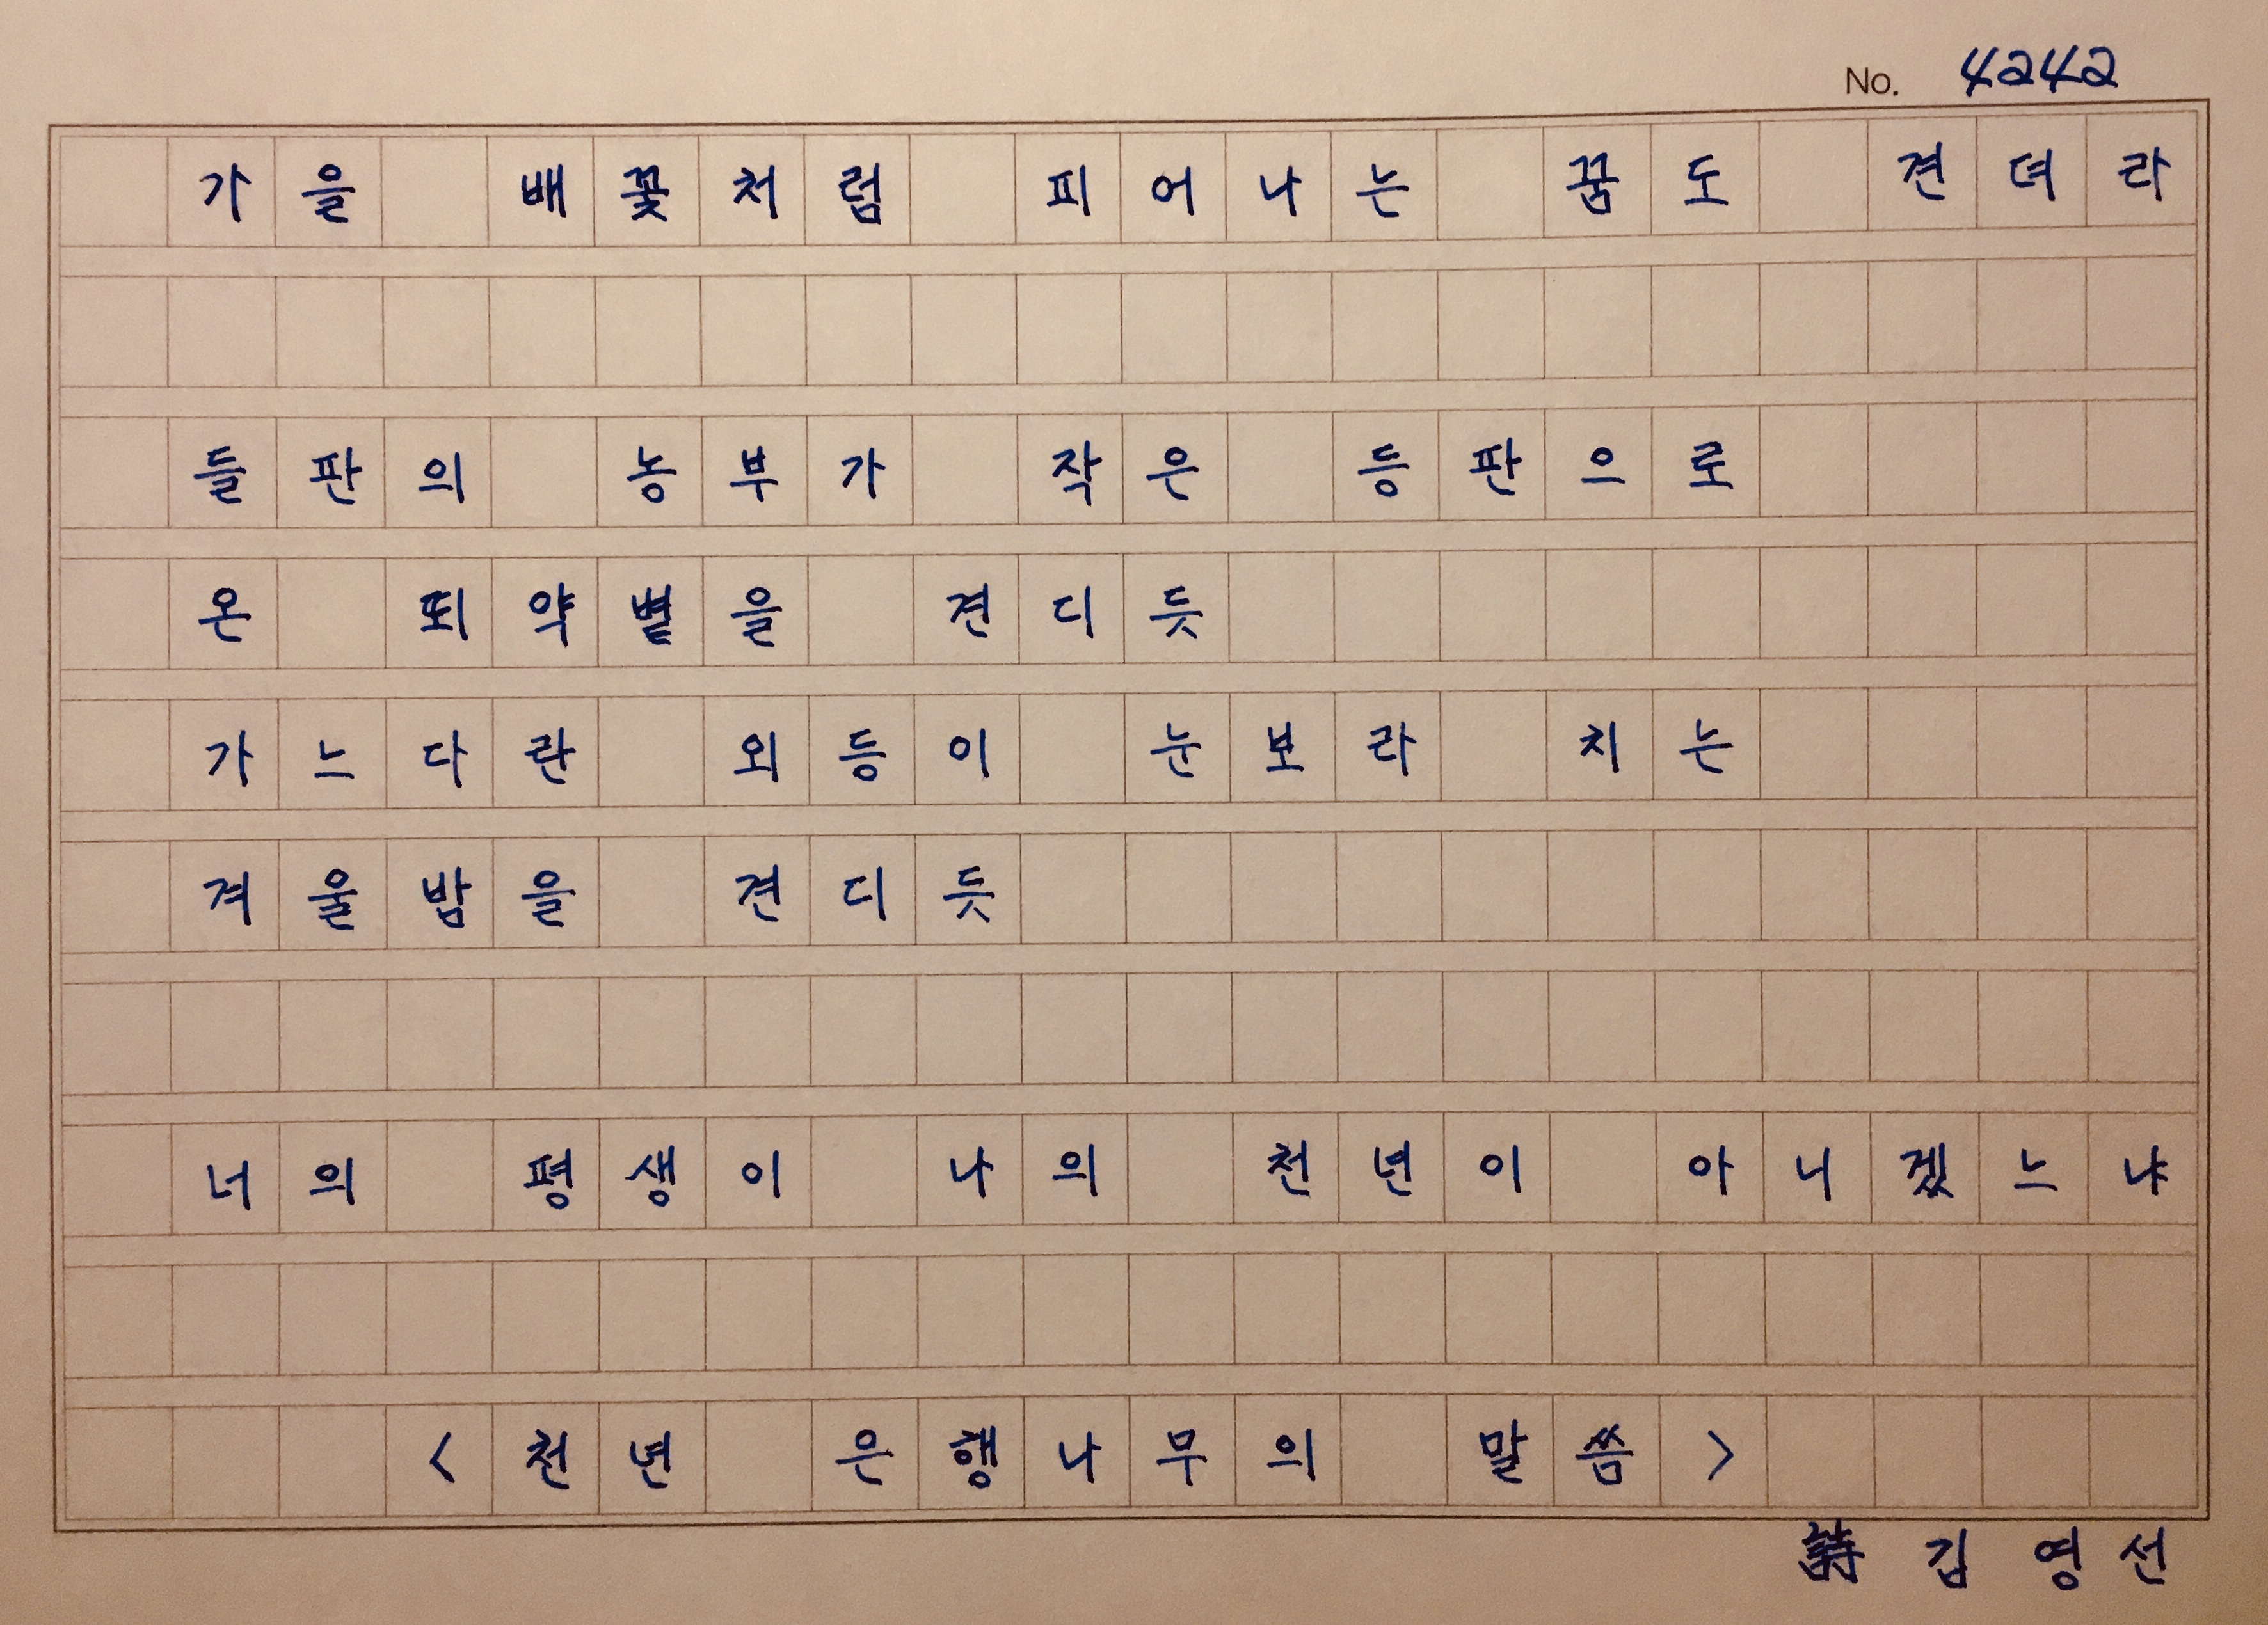 No. 4242
가을 배꽃처럼 피어나는 꿈도 견뎌라
들판의 농부가 작은 등판으로
온 뙤약볕을 견디듯
가느다란 외등이 눈보라 치는
겨울밤을 견디듯
너의 평생이 나의 천년이 아니겠느냐
<천년 은행나무의 말씀>
詩 김영선